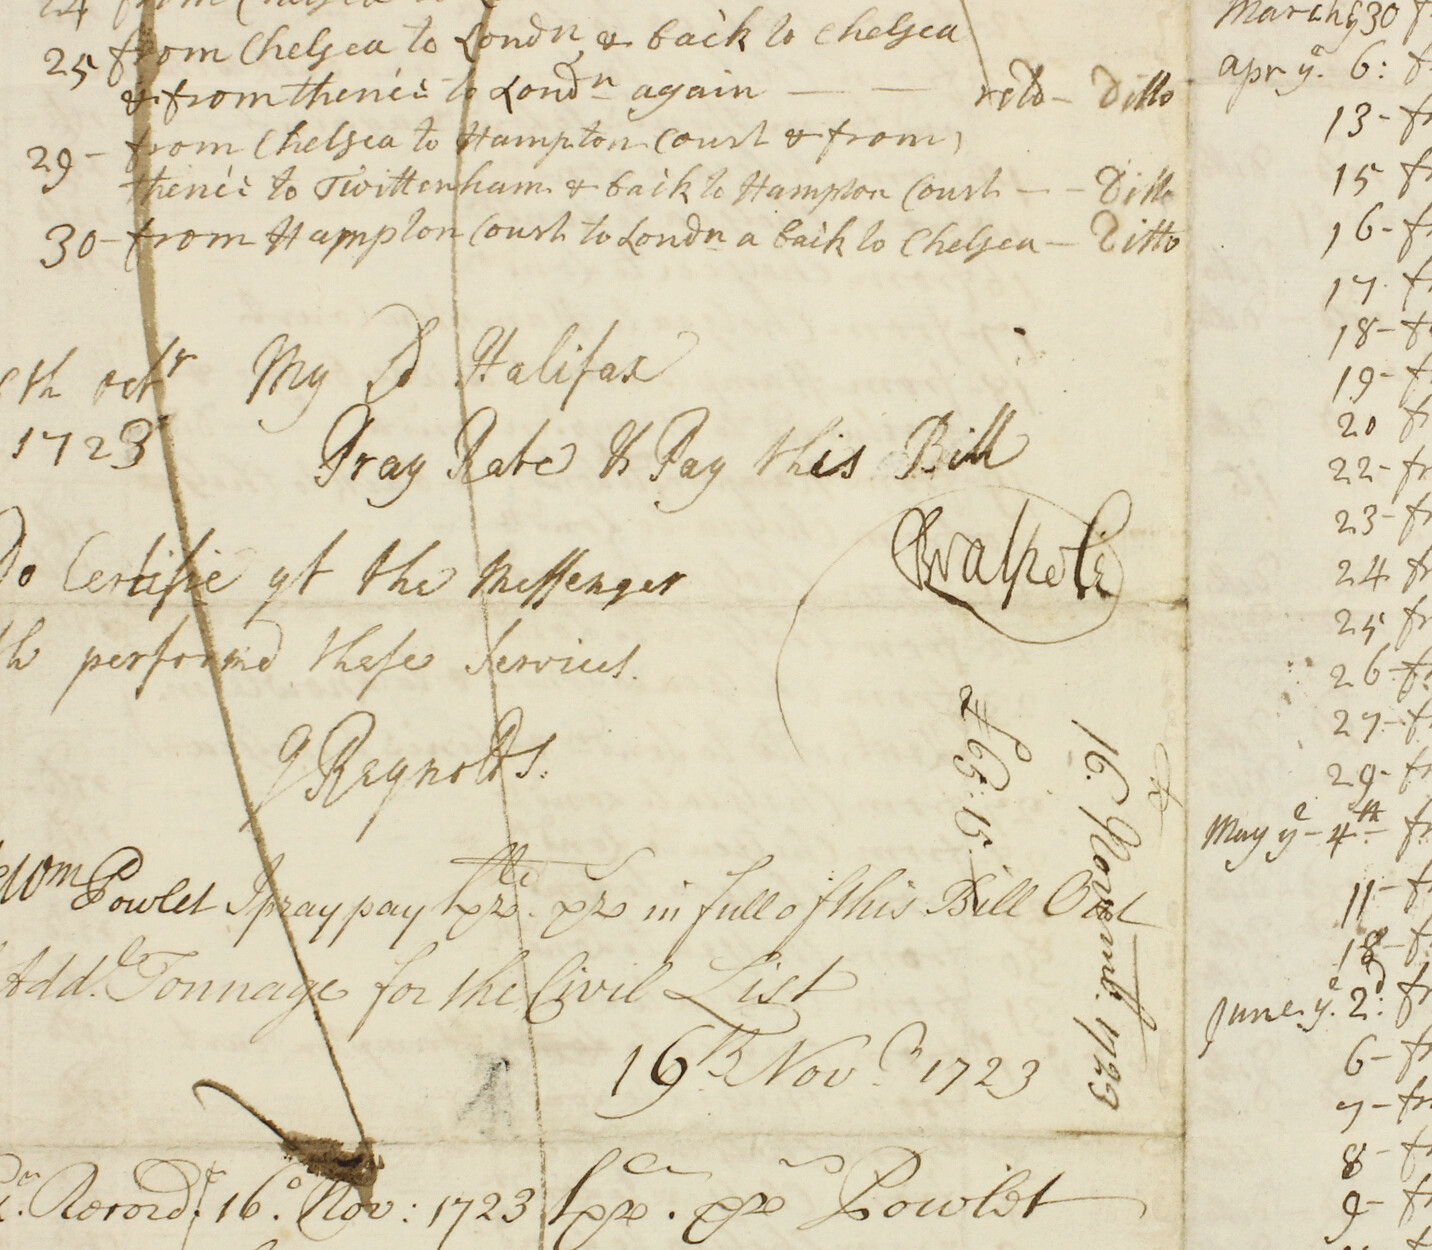 24 from Chelsea to
25 from Chelsea to Londn & back to Chelsea
& from thence to Londn again — — retd - Ditto
29 - from Chelsea to Hampton Court & from
thence to Twittenham & back to Hampton Court - - Ditto
30 - from Hampton Court to Londn a back to Chelsea - Ditto
th octr My Ld Halifax
1723 Pray Rate & Pay this Bill
RWalpole
Do Certifie yt the Messenger
th performed these Services.
J Reynolds.
£65:15
16. Novemb. 1723
Wm Powlet I pray pay in full of this Bill Out
Addl. Tonnage for the Civil List
16th Novr 1723
Record. 16.o Nov: 1723 Powlet
March ye 30 f
apr ye. 6: f
13 - fr
15 fr
16 - fr
17. fr
18 - fr
19 - fr
20 fr
22 - fr
23 - fr
24 fr
25 fr
26 - fr
27 - fr
29 - fr
May ye - 4th - fr
11 - fr
18 - fr
June. ye. 2d: fr
6 - fr
7 - fr
8 - fr
9 - fr